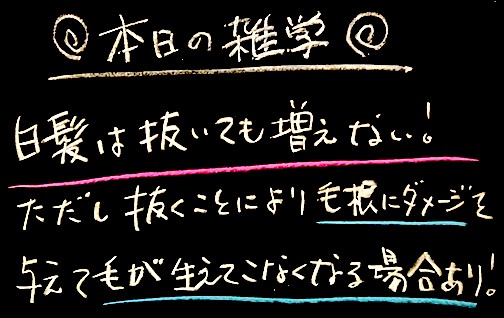 @ 本日の雑学 @
白髪は抜いても増えない!
ただし抜くことにより毛根にダメージを
与えて毛が生えてこなくなる場合あり!